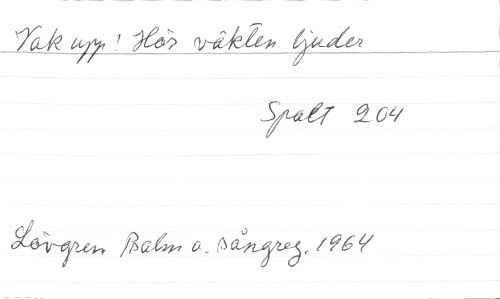 Vak upp! Hör väkten ljuder
Spalt 204
Lövgren Psalm o. sångreg. 1964